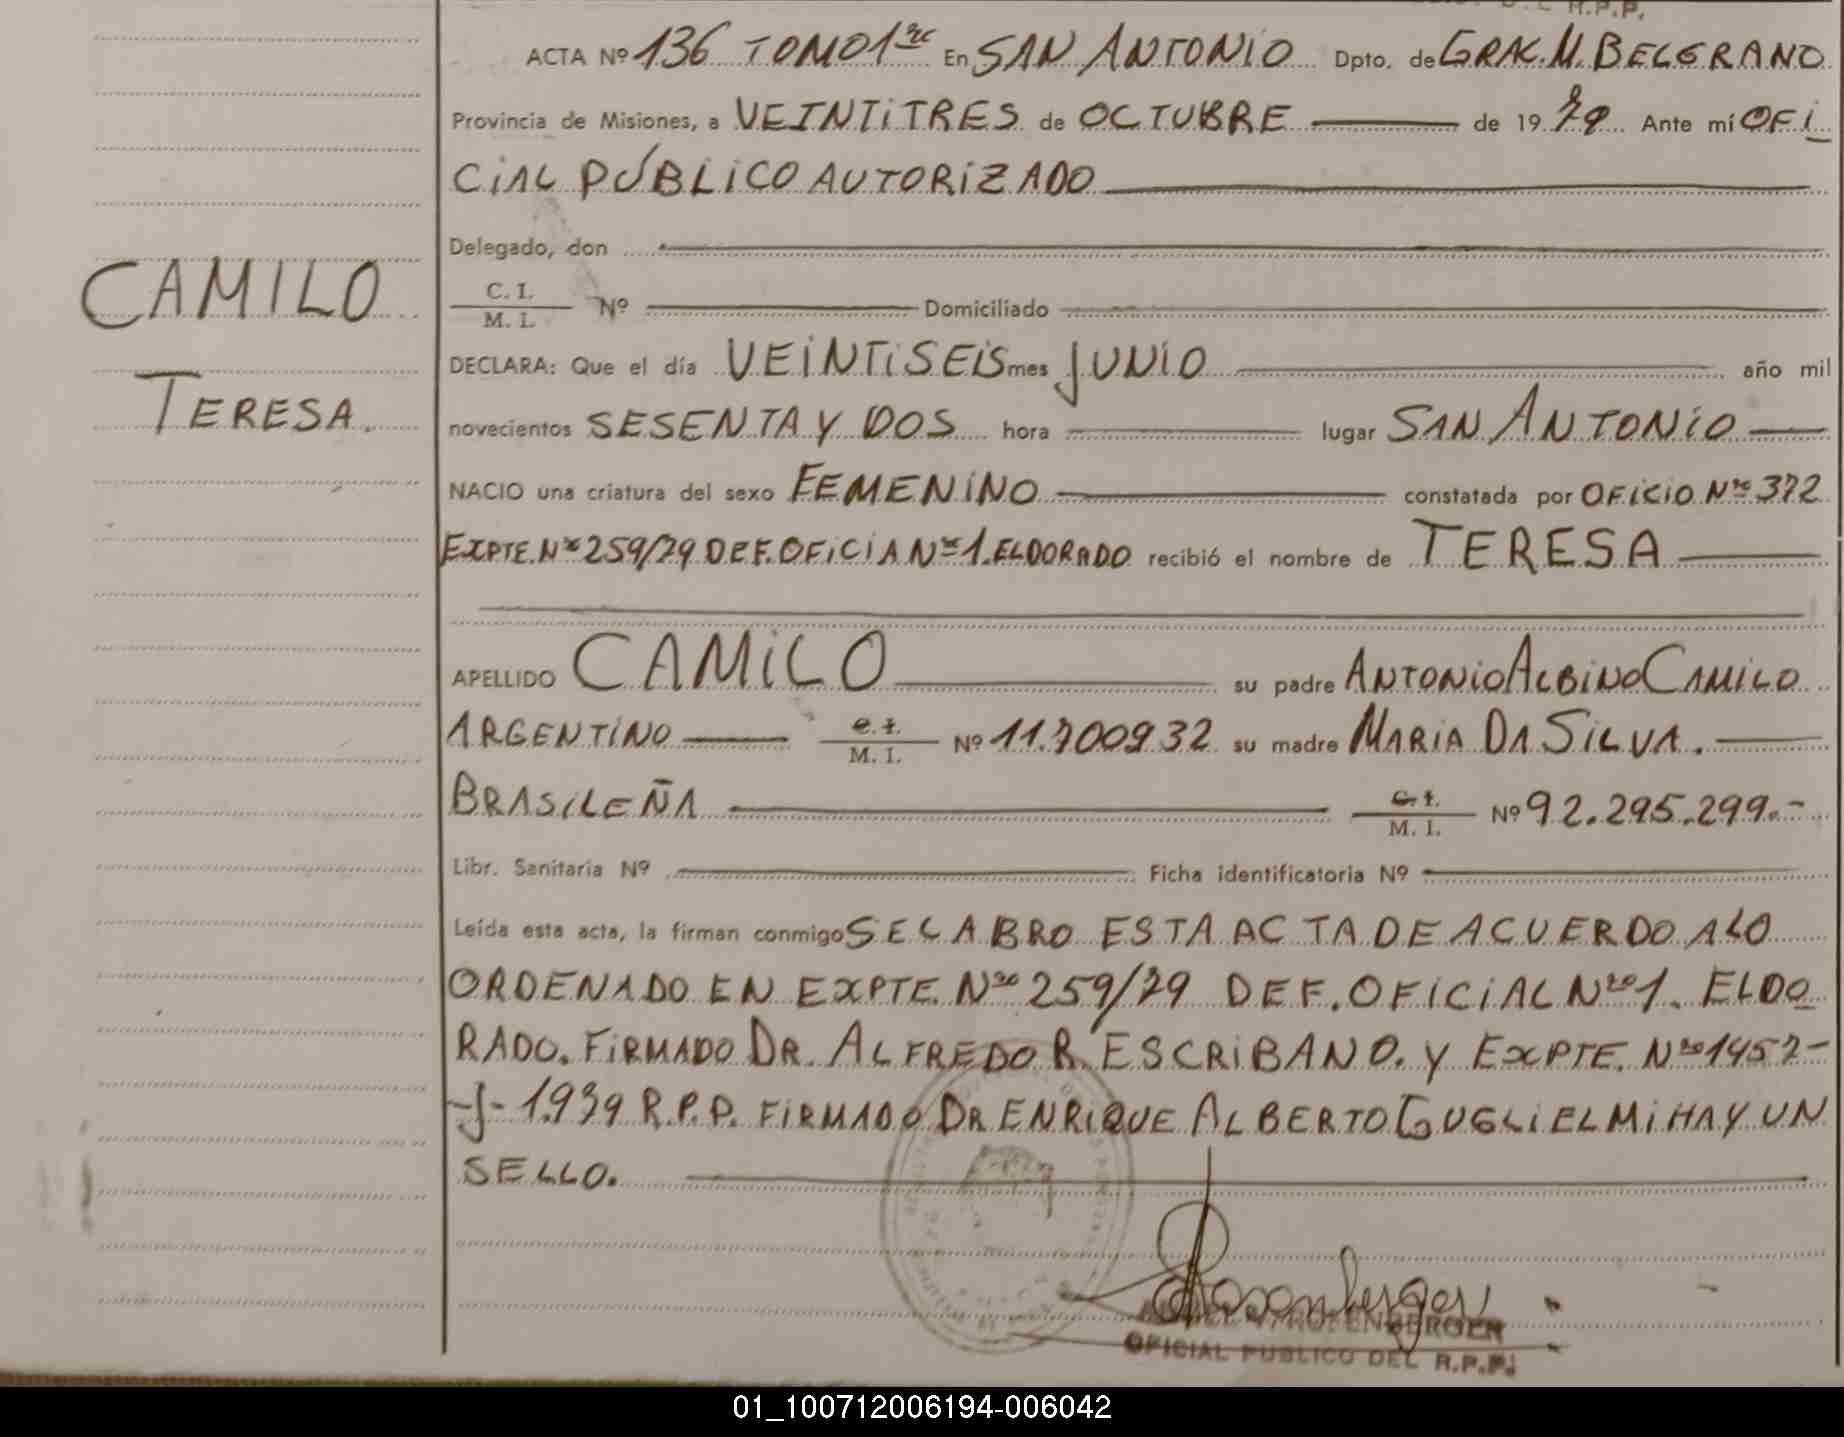 R.P.P.
ACTA Nº 136 TOMO 1ro En SAN ANTONIO Dpto. de GRAL. M. BELGRANO
Provincia de Misiones, a VEINTITRES de OCTUBRE de 19 79 Ante mí OFI
CIAL PÚBLICO AUTORIZADO
Delegado, don
C. I. / M. I. Nº Domiciliado
CAMILO
DECLARA: Que el día VEINTISEIS mes JUNIO año mil
TERESA.
novecientos SESENTA Y DOS hora lugar SAN ANTONIO
NACIO una criatura del sexo FEMENINO constatada por OFICIO Nro 372
EXPTE. Nro 259/79 DEF. OFICIA Nro 1. ELDORADO recibió el nombre de TERESA
APELLIDO CAMILO su padre ANTONIO ALBINO CAMILO
ARGENTINO C.I. / M. I. Nº 11.700932 su madre MARIA DA SILVA.
BRASILEÑA C.I. / M. I. Nº 92.295.299.-
Libr. Sanitaria Nº Ficha identificatoria Nº
Leída esta acta, la firman conmigo SE LABRO ESTA ACTA DE ACUERDO A LO
ORDENADO EN EXPTE. Nro 259/79 DEF. OFICIAL Nro 1. ELDO
RADO. FIRMADO DR. ALFREDO R. ESCRIBANO. Y EXPTE. Nro 1457-
-J- 1.939 R.P.P. FIRMADO DR ENRIQUE ALBERTO GUGLIELMI HAY UN
SELLO.
OFICIAL PUBLICO DEL R.P.P.
01_100712006194-006042